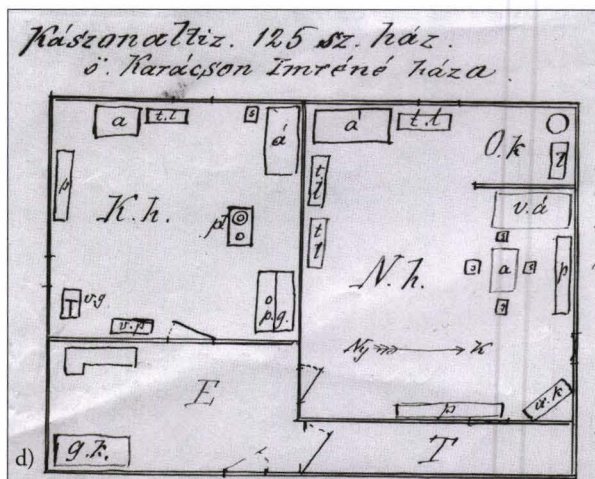 Kászonaltiz. 125 sz. ház.
ö. Karácson Imréné háza.
a
t.l
s
á
p
K.h.
v.g.
v.p
p.g.
á
t.l
O.k
l
t.l
t.l
v.á
s
s
a
s
p
N.h.
Ny
K
p
E
g.k.
T
d)